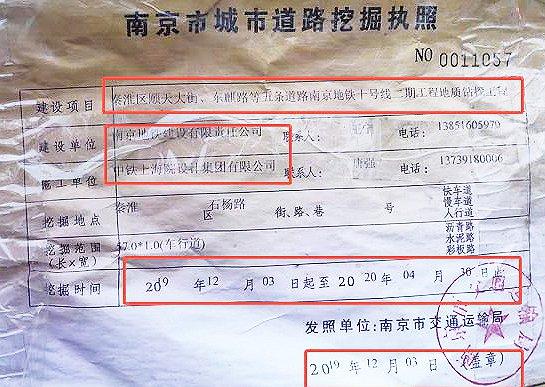 南京市城市道路挖掘执照
NO 0011057
建设项目 秦淮区顺天大街、东麒路等五条道路南京地铁十号线二期工程地质钻探工程
建设单位 南京地铁建设有限责任公司 联系人: 电话: 13851605979
施工单位 中铁上海院设计集团有限公司 联系人: 强 电话: 13739180006
挖掘地点 秦淮 区 石杨路 街、路、巷 号 快车道 慢车道 人行道
挖掘范围(长×宽) 37.0*1.0(车行道) 沥青路 水泥路 彩板路
挖掘时间 2019 年 12 月 03 日起至 2020 年 04 月 30 日止
发照单位:南京市交通运输局
2019 年 12 月 03 日 (盖章)